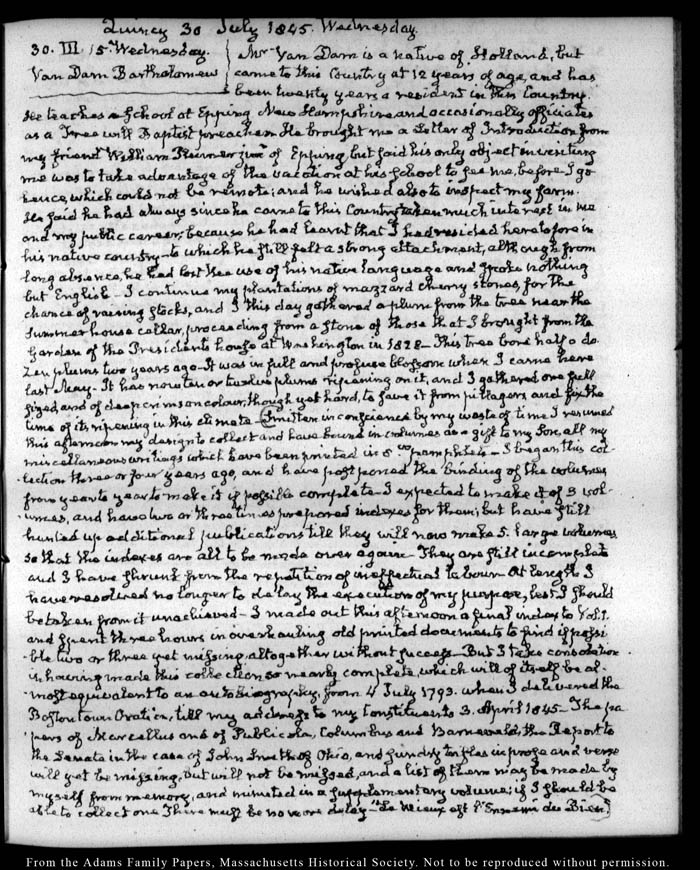 Quincy 30 July 1845. Wednesday.
30. III. 15. Wednesday.
Van Dam Bartholomew
Mr Van Dam is a native of Holland, but
came to this Country at 12 years of age, and has
been twenty years a resident in this Country.
He teaches a School at Epping New Hampshire and occasionally officiates
as a Free will Baptist preacher. He brought me a Letter of Introduction from
my friend William Plumer junr of Epping, but said his only object in visiting
me was to take advantage of the vacation at his School to see me, before I go
hence, which could not be remote; and he wished also to inspect my farm.
He said he had always since he came to this Country taken much interest in me
and my public career, because he had learnt that I had resided heretofore in
his native country to which he still felt a strong attachment, although from
long absence, he had lost the use of his native language and spoke nothing
but English - I continue my plantations of mazzard cherry stones, for the
chance of raising stocks, and I this day gathered a plum from the tree near the
summer house cellar, proceeding from a stone of those that I brought from the
Garden of the Presidents house at Washington in 1828 - This tree bore half a do-
zen plums two years ago - It was in full and profuse blossom when I came here
last May - It has now ten or twelve plums ripening on it, and I gathered one full
sized, and of deep crimson colour, though yet hard, to save it from pillagers and fix the
time of its ripening in this climate - Smitten in conscience by my waste of time I resumed
this afternoon my design to collect and have bound in volumes as a gift to my Son, all my
miscellaneous writings which have been printed in 8vo pamphlets - I began this col-
lection three or four years ago, and have postponed the binding of the volumes
from year to year to make it if possible complete - I expected to make it of 3 vol-
umes, and have two or three times prepared indexes for them; but have still
hunted up additional publications till they will now make 5. large volumes
so that the indexes are all to be made over again - They are still incomplete
and I have shrunk from the repetition of ineffectual labour At length I
have resolved no longer to delay the execution of my purpose, lest I should
be taken from it unachieved - I made out this afternoon a final index to Vol. 1.
and spent three hours in overhauling old printed documents to find if possi-
ble two or three yet missing, altogether without success - But I take consolation
in having made this collection so nearly complete, which will of itself be al-
most equivalent to an autobiography, from 4 July 1793. when I delivered the
Boston town Oration, till my address to my Constituents 3. April 1845 - The pa-
pers of Marcellus and of Publicola, Columbus and Barneveld, the Report to
the Senate in the case of John Smith of Ohio, and sundry trifles in prose and verse
will yet be missing, but will not be missed, and a list of them may be made by
myself from memory, and minuted in a supplementary volume; if I should be
able to collect one There must be no more delay - "Le Mieux est l'Ennemi du Bien"
From the Adams Family Papers, Massachusetts Historical Society. Not to be reproduced without permission.